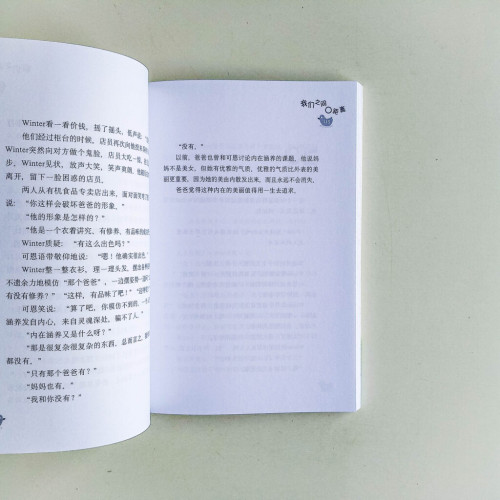 Winter看一看价钱，摇了摇头，低声说：
他们经过柜台的时候，店员再次向
Winter突然向对方做个鬼脸，店员大吃一惊，
步，Winter见状，放声大笑，笑声爽朗，他
离开，留下一脸困惑的店员。
两人从有机食品专卖店出来，面对面
说：“你这样会破坏爸爸的形象。”
“他的形象是怎样的？”
“他是一个衣着讲究、有修养、有品味的
Winter质疑：“有这么出色吗？”
可恩语带敬仰地说：“嗯！他确实很出色
Winter整一整衣衫，理一理头发，摆出
不遗余力地模仿“那个爸爸”，一边摆
有没有修养？”“这样，有品味了吧！”
可恩笑说：“算了吧，你模仿不到的，一个人
涵养发自内心，来自灵魂深处，骗不了人。”
“内在涵养又是什么呀？”
“那是很复杂很复杂的东西，总而言之，
都没有。”
“只有那个爸爸有？”
“妈妈也有。”
“我和你没有？”
我们之间
“没有。”
以前，爸爸也曾和可恩讨论内在涵养的课题，他说妈
妈不是美女，但她有优雅的气质，优雅的气质比外表的美
丽更重要，因为她的美由内散发出来，而且永远不会消失，
爸爸觉得这种内在的美丽值得用一生去追求。